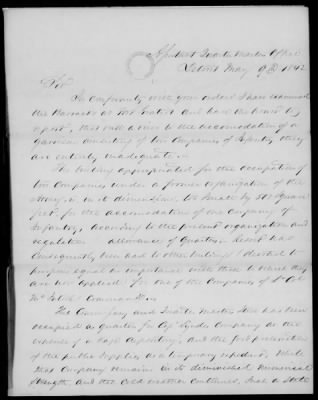 Assistant Quarter Master Office
Detroit May 9th 1842
Sir
In conformity with your orders I have examined
the Barracks at Fort Gratiot and have the honor to
report, that with a view to the accommodation of a
Garrison consisting of two Companies of Infantry they
are entirely inadequate.
The building appropriated for the occupation of
two Companies under a former organization of the
Army, is in its dimensions, too small by 202 square
feet, for the accommodation of one Company of
Infantry, according to the present organization and
regulation allowance of Quarters. Resort has
consequently been had to other buildings devoted to
purposes equal in importance with those to which they
are now applied for one of the Companies of Lt Col
Commandten
The Commissary and Quarter Masters Store has been
occupied as quarters for Capt Company at the
expense of a safe depository, and the preservation
of the public supplies as a temporary expedient. While
that Company remains in its diminished numerical
strength and the cold weather continues, such a State